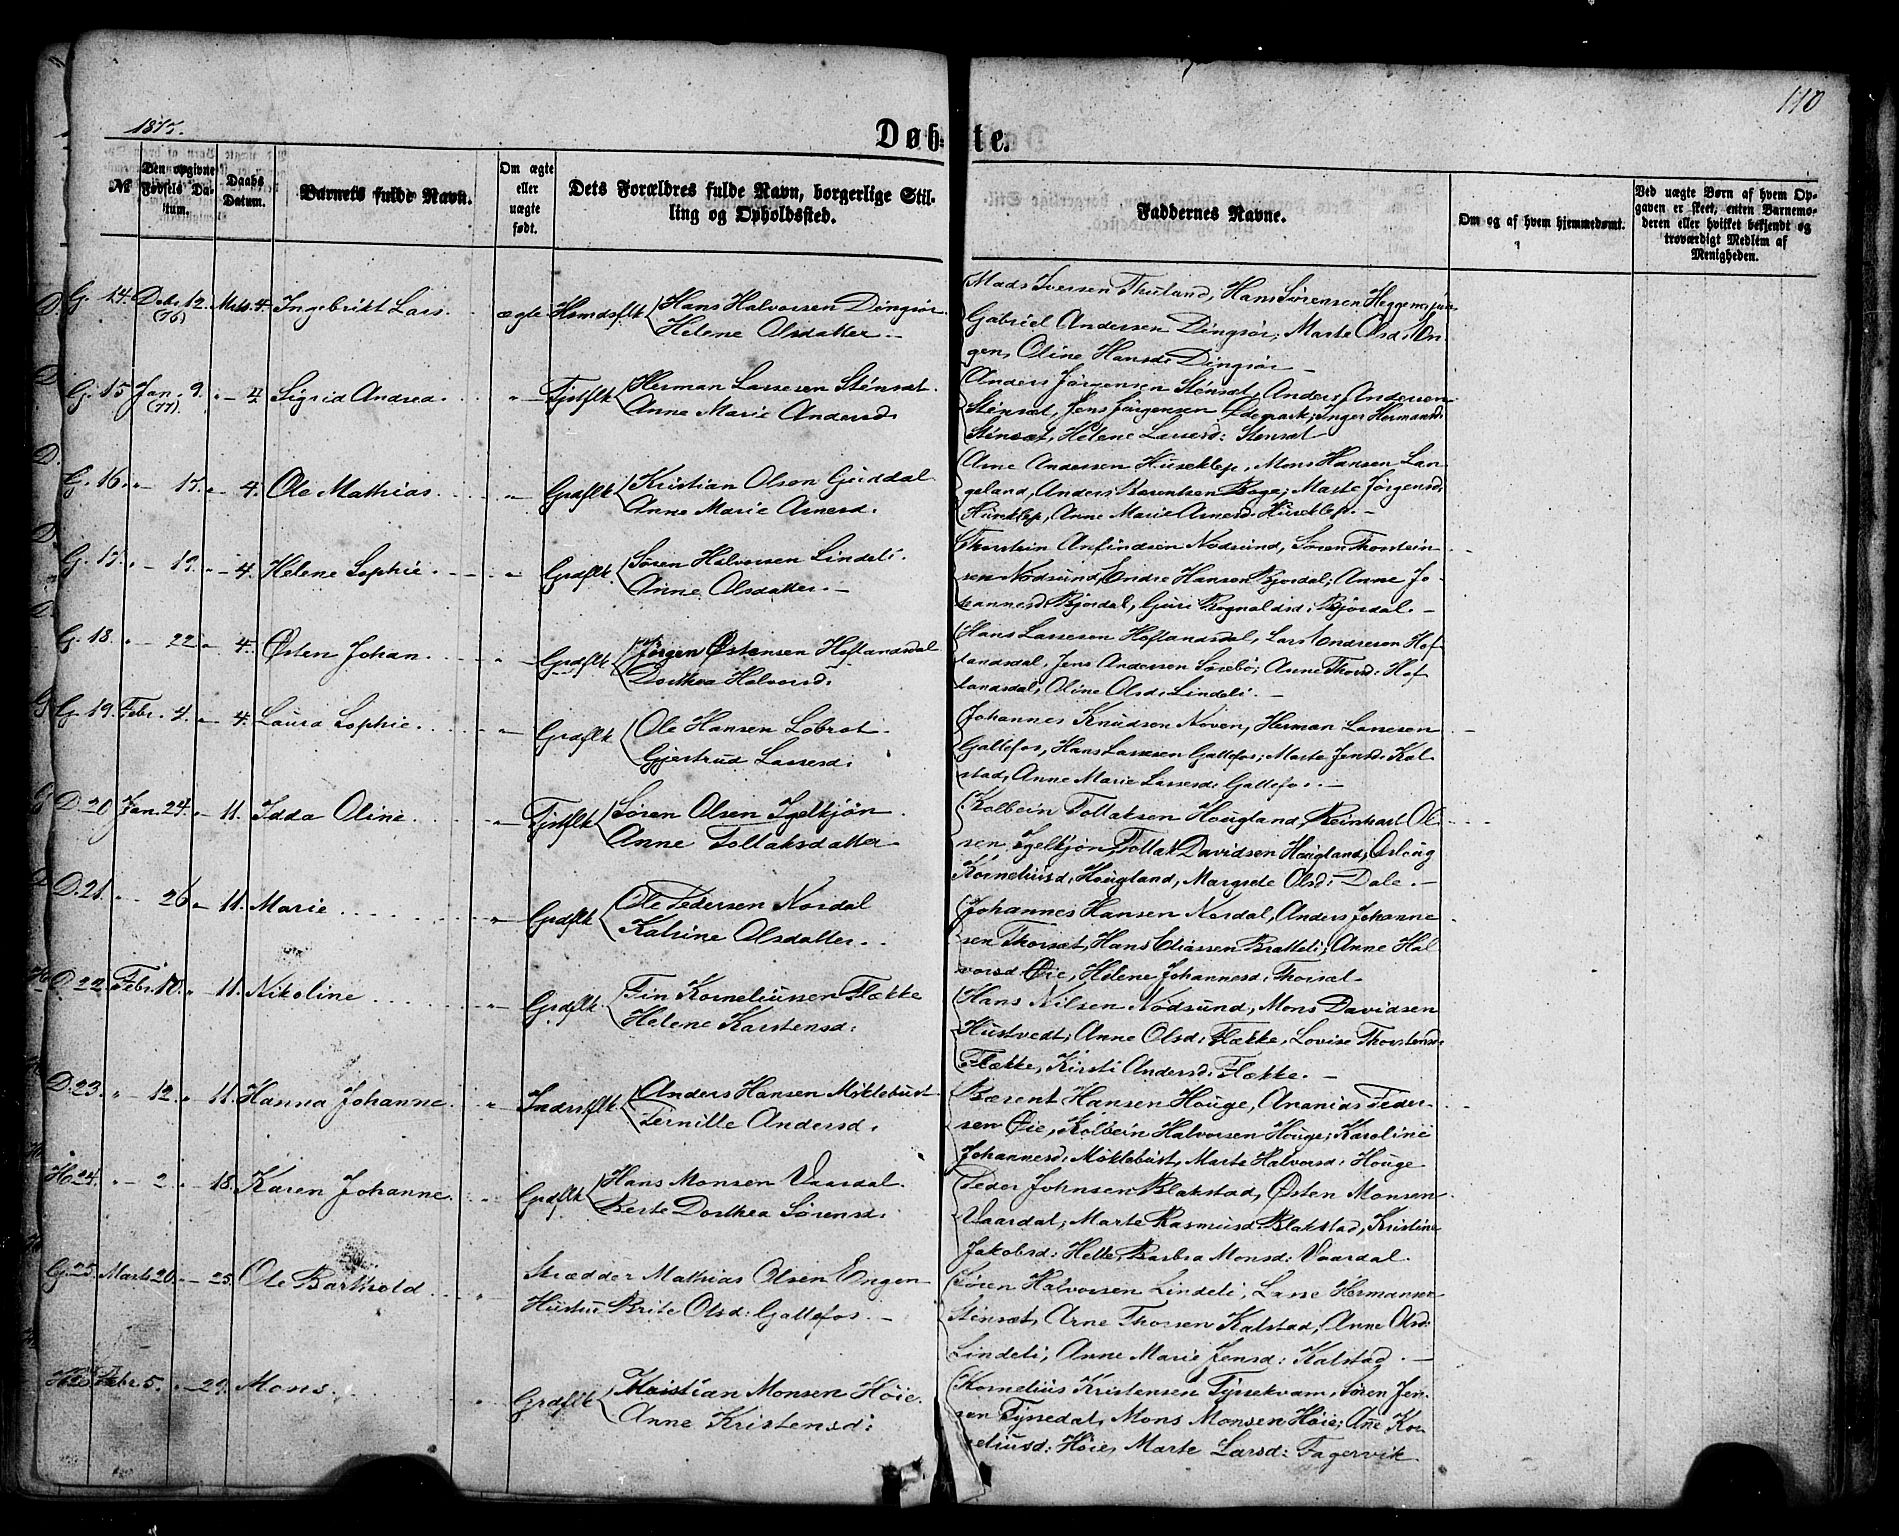 110
1877.
Døbte.
№
Den opgivne Fødsels Datum.
Daabs Datum.
Barnets fulde Navn.
Om ægte eller uægte født.
Dets Forældres fulde Navn, borgerlige Stilling og Opholdssted.
Faddernes Navne.
Om og af hvem hjemmedømt.
Ved uægte Børn af hvem Opgaven er skeet, enten Barnemoderen eller hvilket bekjendt og troværdigt Medlem af Menigheden.
G. 14. Debr 12. (76) Mrts. 4. Ingebrikt Lars. ægte Hsmdsflk Hans Halvorsen Dingsør
Helene Olsdatter. —
Mads Iversen Thuland, Hans Sørensen
Gabriel Andersen Dingsør, Marte Olsd:
gen, Oline Hansd: Dingsør —
G. 15 Jan. 9. (77). " — 4. Sigrid Andrea. " Tjstflk Herman Lassesen Stensæt.
Anne Marie Andersd.
Anders Jørgensen Stensæt, Anders Andersen
Stensæt, Jens Jørgensen Inger Hermansd:
Stensæt, Helene Lassesd: Stensæt
G. 16. " — 17. " — 4. Ole Mathias. " Grdflk Kristian Olsen Guddal.
Anne Marie Arnesd.
Arne Andersen Huseklep, Mons Hansen Lan-
geland, Anders Berentsen Marte Jørgensd:
Anne Marie Arnesd: Huseklep. —
G. 17. " — 19. " — 4. Helene Sophie. " Grdflk Søren Halvorsen Lindeli.
Anne Olsdatter. —
Thorstein Anfindsen Nødsund, Søren Thorstein-
sen Nødsund, Endre Hansen Bjordal; Anne Jo-
hannesd: Bjordal, Guri Rognaldsd: Bjordal. —
G. 18. " — 22 " — 4. Østen Johan. " Grdflk Jørgen Østensen Hoflandsdal
Dorthea Halvorsd:
Hans Lassesen Hoflandsdal, Lars Andresen Hof-
landsdal, Jens Andersen Sørebø; Anne Thorsd: Hof-
landsdal, Oline Olsd: Lindeli. —
G. 19. Febr. 4. " — 4. Laura Sophie. " Grdflk Ole Hansen Løbrot.
Gjertrud Lassesd:
Johannes Knudsen Noven, Herman Lassesen
Gallefos, Hans Lassesen Gallefos; Marte Jensd: Kal-
stad, Anne Marie Lassesd: Gallefos. —
D. 20 Jan. 24. " — 11. Idda Oline. " Tjstflk Søren Olsen Igelkjøn.
Anne Tollaksdatter.
Kolbein Tollaksen Hougland, Reinhart Ol-
sen Igelkjøn, Tollak Davidsen Hougland, Oslaug
Korneliusd: Hougland, Margrete Olsd: Dale. —
D. 21. " — 26 " — 11. Marie " Grdflk Ole Pedersen Nordal
Katrine Olsdatter. —
Johannes Hansen Nordal, Anders Johanne-
sen Thorsæt, Hans Eliassen Bratteli; Anne Hal-
vorsd: Øie, Helene Johannesd: Thorsæt —
D. 22. Febr. 10. " — 11. Nikoline " Grdflk Fin Korneliussen Flække
Helene Karstensd:
Hans Nilsen Nødsund, Mons Davidsen
Hustvedt; Anne Olsd: Flække, Lovise Thorstensd:
Flække, Kirsti Andersd: Flække. —
D. 23. " — 12. " — 11. Hanna Johanne. " Indrstflk Anders Hansen Møklebust
Pernille Andersd.
Bærent Hansen Houge, Ananias Peder-
sen Øie, Kolbein Halvorsen Houge; Karoline
Johannesd: Møklebust, Marte Halvorsd: Houge
H. 24. " — 2 " — 18. Karen Johanne. " Grdflk Hans Monsen Vaardal
Berte Dorthea Sørensd:
Peder Johnsen Blakstad, Østen Monsen
Vaardal; Marte Rasmusd: Blakstad, Kristine
Jakobsd: Helle, Barbra Monsd: Vaardal.
G. 25. Marts 20. " — 25. Ole Barthold " Skrædder Mathias Olsen Engen
Hustru Brite Olsd: Gallefos. —
Søren Halvorsen Lindeli, Lasse Hermansen
Stensæt, Arne Thorsen Kalstad; Anne Olsd:
Lindeli, Anne Marie Jensd: Kalstad. —
H. 26 Febr. 5. " — 29. Mons. " Grdflk Kristian Monsen Høie.
Anne Kristensd:
Kornelius Kristensen Tyssekvam, Søren Jen-
sen Tyssedal, Mons Monsen Høie; Ane Kor-
neliusd: Høie, Marte Larsd: Fagervik.